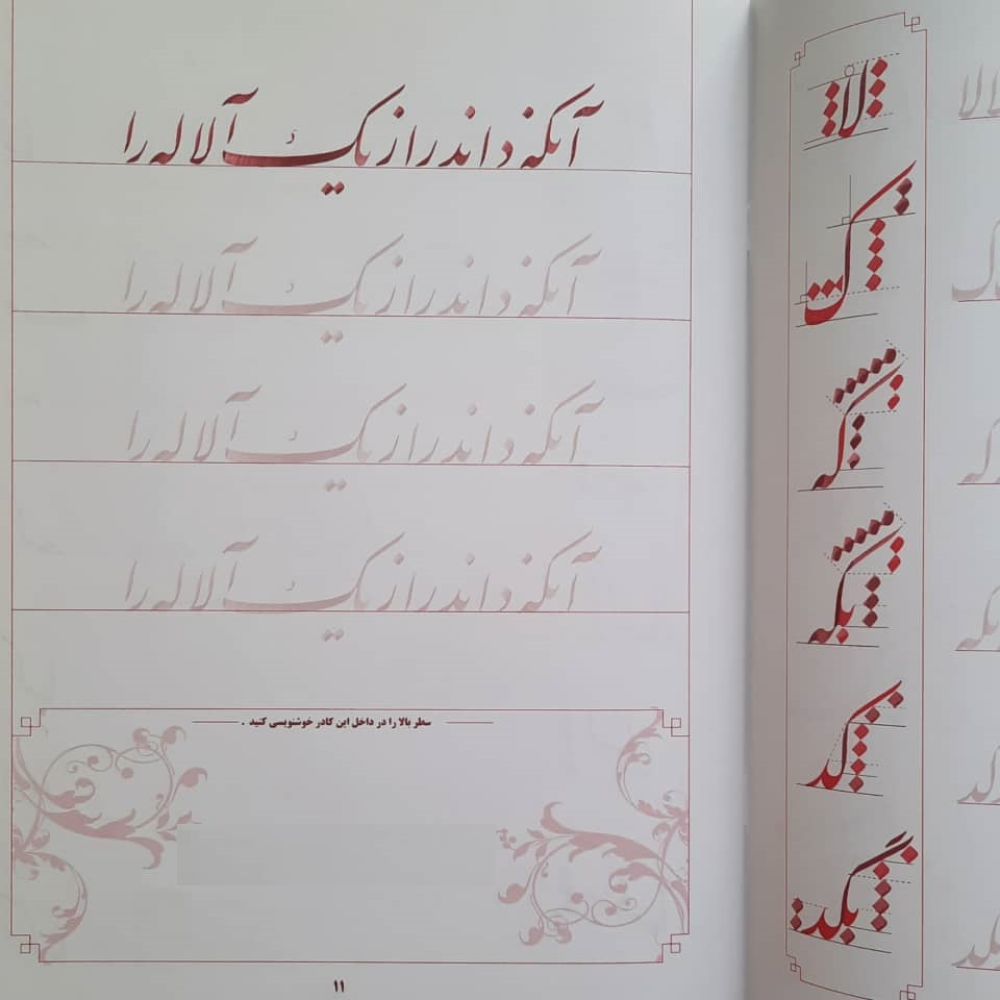 لا
ک
که
نکه
کد
آنکه داند راز یک آلاله را
آنکه داند راز یک آلاله را
آنکه داند راز یک آلاله را
آنکه داند راز یک آلاله را
سطر بالا را در داخل این کادر خوشنویسی کنید .
۱۱